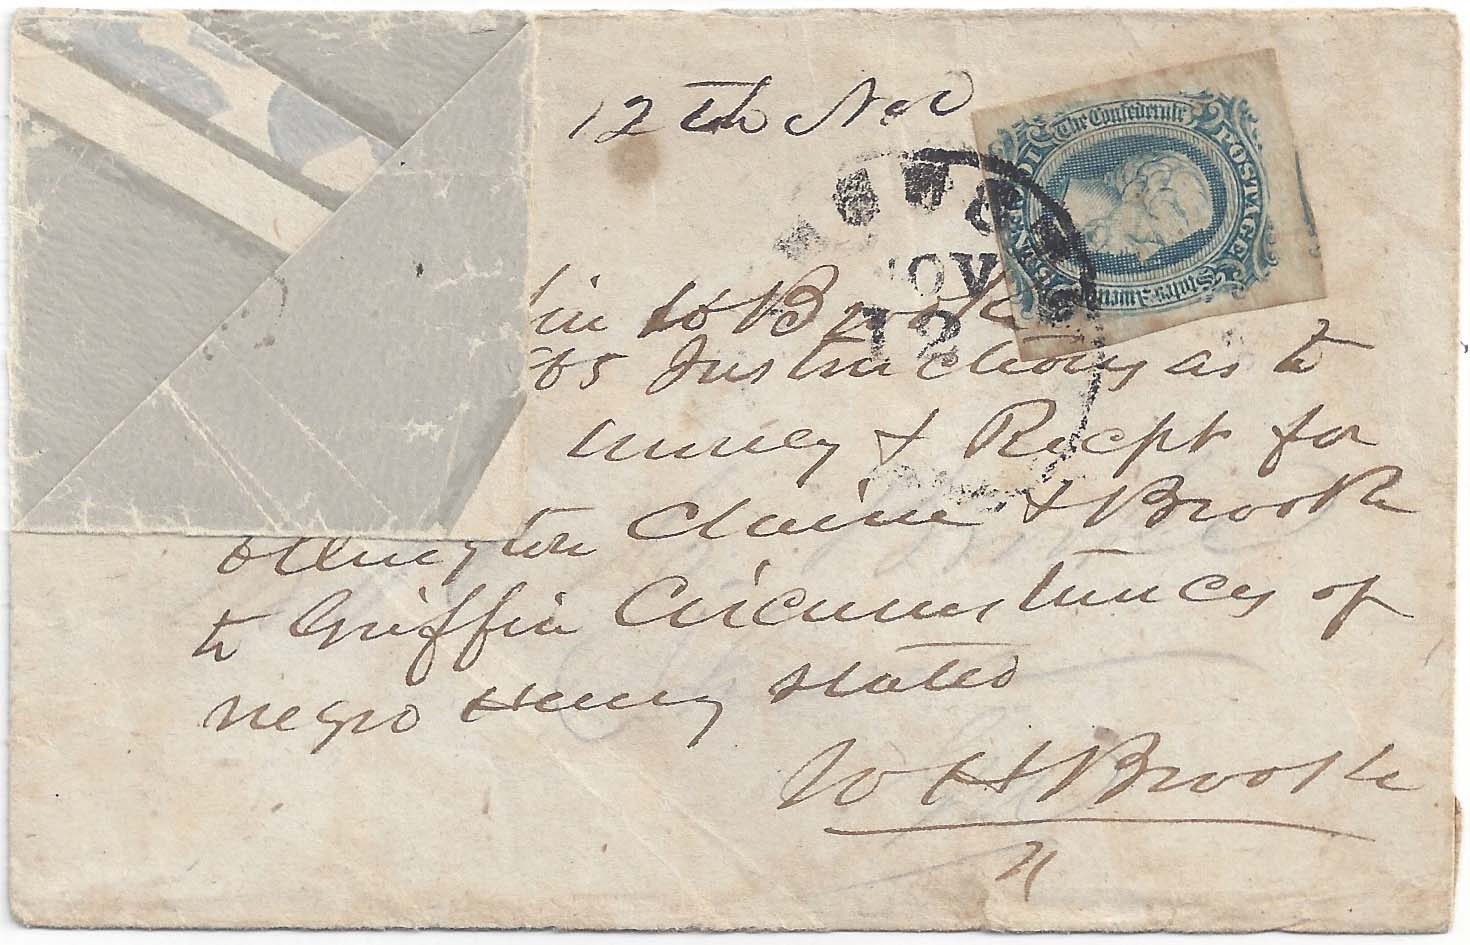 12th Nov
The Confederate
States America
POSTAGE
TEN CENTS
NOV
12
in to Brook
Instructions as to
& Recpt for
Claim & Brook
to Griffin Circumstances of
negro Henry stated
W H Brook